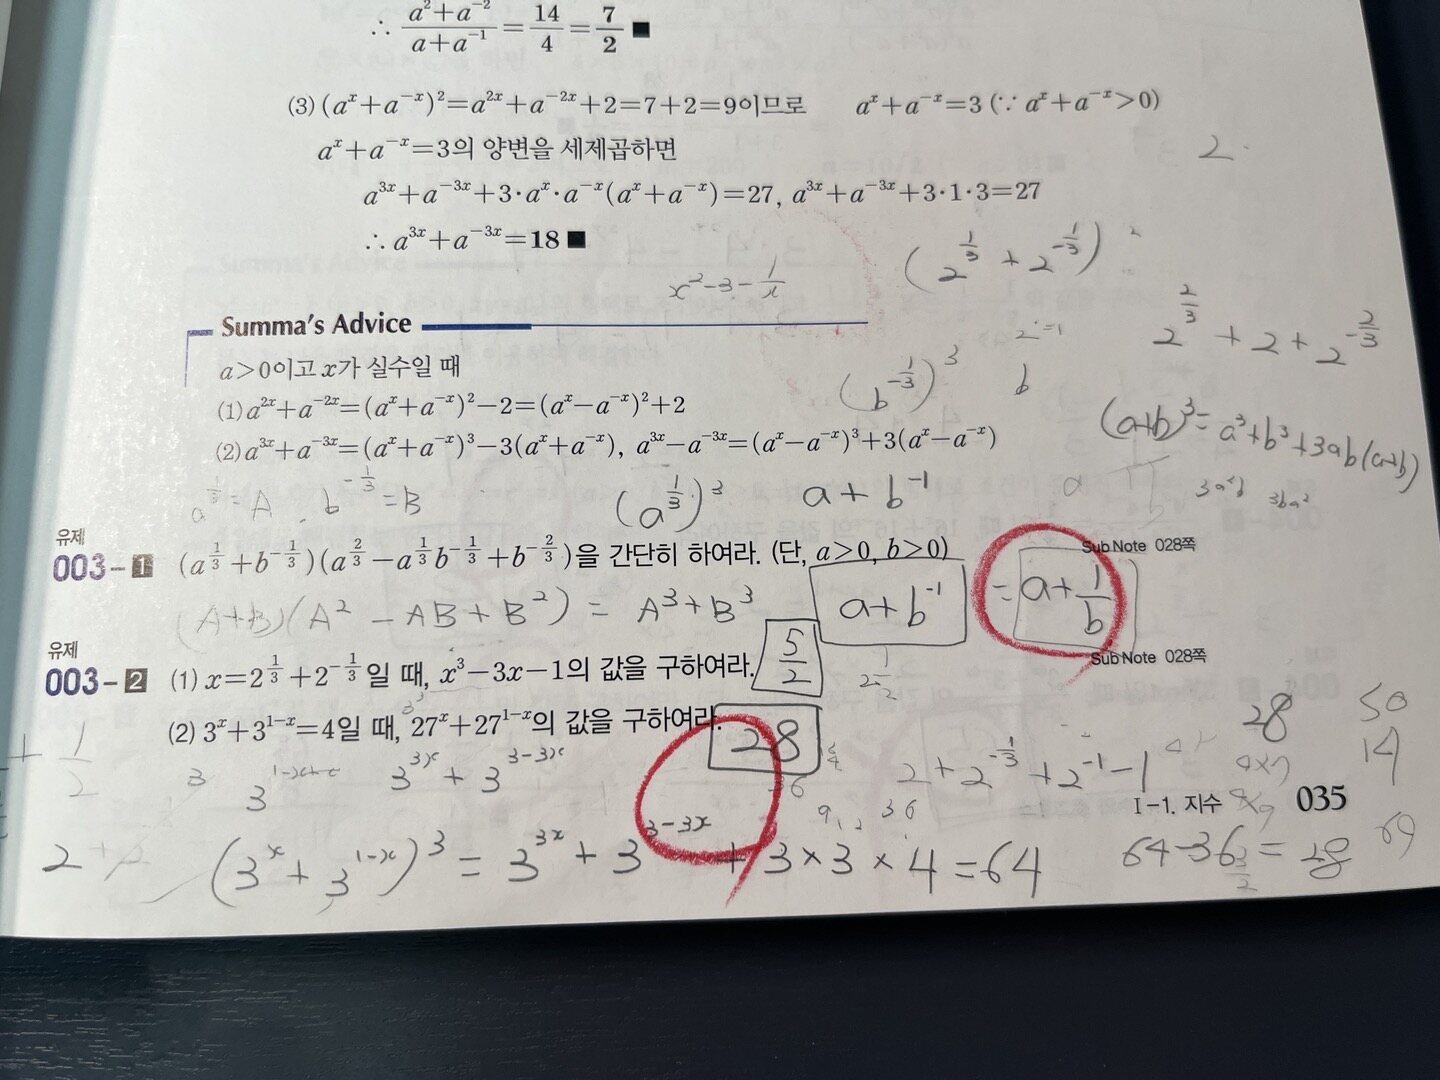 ∴ (a²+a⁻²)/(a+a⁻¹) = 14/4 = 7/2 ■
(3) (aˣ+a⁻ˣ)²=a²ˣ+a⁻²ˣ+2=7+2=9이므로 aˣ+a⁻ˣ=3 (∵ aˣ+a⁻ˣ>0)
aˣ+a⁻ˣ=3의 양변을 세제곱하면
2
a³ˣ+a⁻³ˣ+3·aˣ·a⁻ˣ(aˣ+a⁻ˣ)=27, a³ˣ+a⁻³ˣ+3·1·3=27
∴ a³ˣ+a⁻³ˣ=18 ■
(2^(1/3) + 2^(-1/3))²
x²-3-1/x
2^(2/3) + 2 + 2^(-2/3)
Summa's Advice
a>0이고 x가 실수일 때
(b^(-1/3))³ b
(1) a²ˣ+a⁻²ˣ=(aˣ+a⁻ˣ)²-2=(aˣ-a⁻ˣ)²+2
(a+b)³= a³+b³+3ab(a+b)
(2) a³ˣ+a⁻³ˣ=(aˣ+a⁻ˣ)³-3(aˣ+a⁻ˣ), a³ˣ-a⁻³ˣ=(aˣ-a⁻ˣ)³+3(aˣ-a⁻ˣ)
a^(1/3)=A b^(-1/3)=B (a^(1/3))³ a+b⁻¹
3a²b 3ba²
유제
003-1 (a^(1/3)+b^(-1/3))(a^(2/3)-a^(1/3)b^(-1/3)+b^(-2/3))을 간단히 하여라. (단, a>0, b>0)
Sub Note 028쪽
(A+B)(A²-AB+B²) = A³+B³ a+b⁻¹ = a+1/b
유제
Sub Note 028쪽
003-2 (1) x=2^(1/3)+2^(-1/3)일 때, x³-3x-1의 값을 구하여라. 5/2
(2) 3ˣ+3¹⁻ˣ=4일 때, 27ˣ+27¹⁻ˣ의 값을 구하여라. 28
28 50
14
+ 1/2
3 3³ˣ + 3³⁻³ˣ
2+2^(-1/3)+2⁻¹-1
36
I-1. 지수 035
(3ˣ + 3¹⁻ˣ)³ = 3³ˣ + 3³⁻³ˣ + 3×3×4 = 64
64-36 = 28